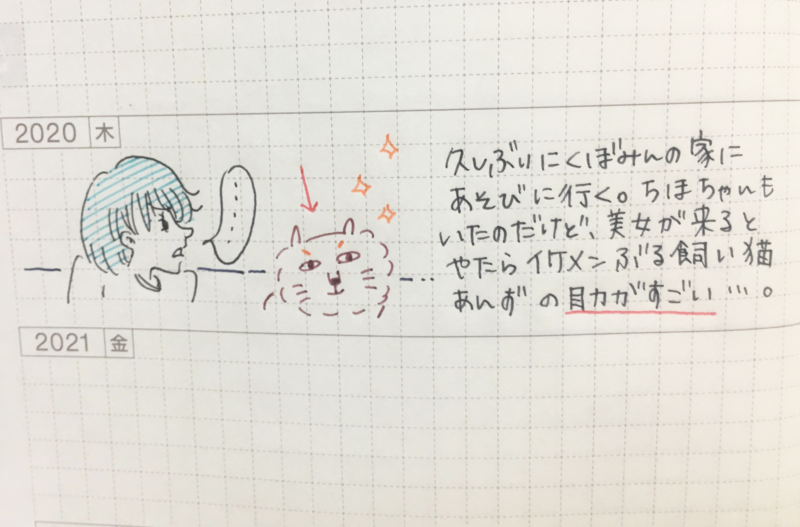 2020 木
久しぶりにくぼみんの家に
あそびに行く。ちほちゃんも
いたのだけど、美女が来ると
やたらイケメンぶる飼い猫
あんずの目力がすごい…。
2021 金